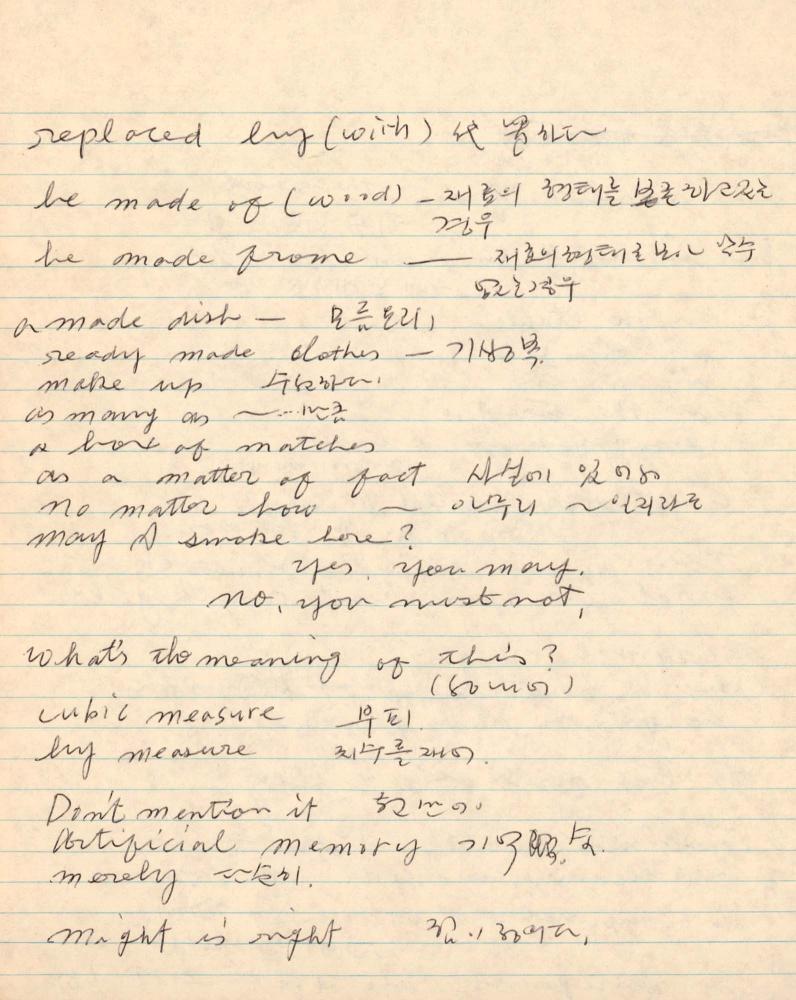 replaced by (with) 代 하다
be made of (wood) – 재료의 형태를 본존하고 있는
경우
be made frome — 재료의 형태를 보 수
없는 경우
a made dish — 모듬요리,
ready made clothes — 기성복.
make up 하다.
as many as ~ ... 만큼
a box of matches
as a matter of fact 사실에 있어서
no matter how ~ 아무리 ~ 일지라도
may I smoke here?
yes, you may.
no, you must not,
what's the meaning of this?
(some)
cubic measure 부피.
by measure 치수를 재어.
Don't mention it 천만에.
Artificial memory 기억
merely 단순히.
might is right 힘이 정의다,